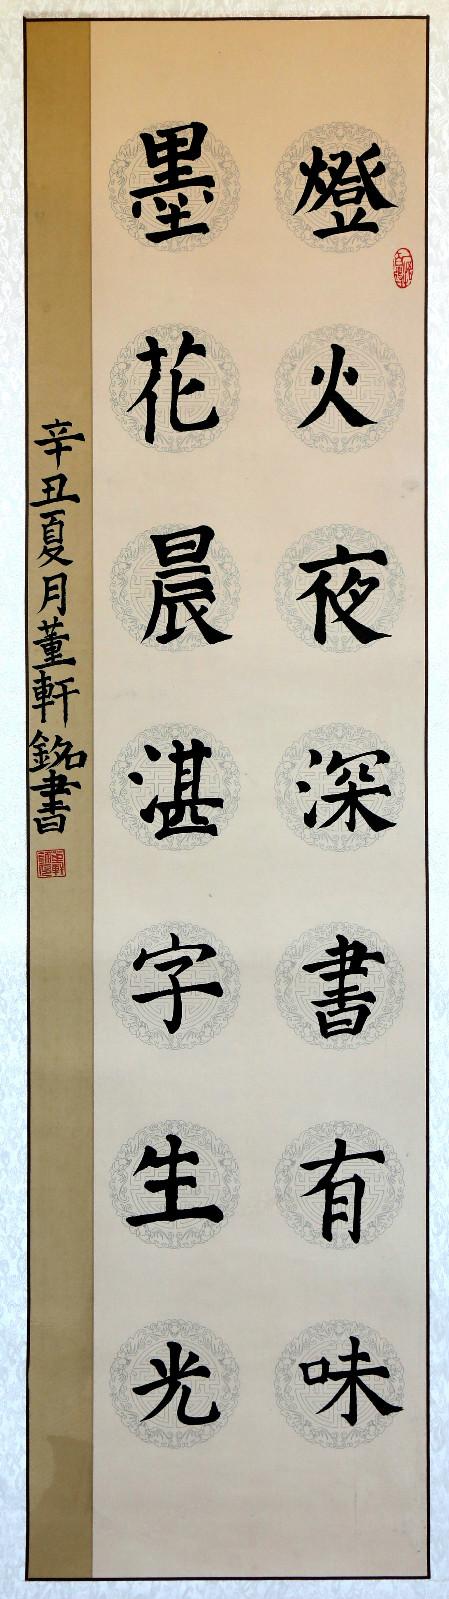 燈火夜深書有味
墨花晨湛字生光
辛丑夏月董軒銘書